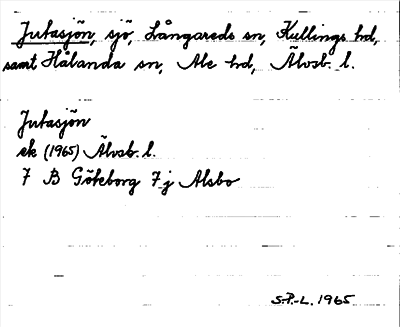 Jutasjön, sjö, Långareds sn, Kullings hd,
samt Hålanda sn, Ale hd, Älvsb. l.
Jutasjön
ek (1965) Älvsb. l.
7 B Göteborg 7 j Alsbo
S.P.-L. 1965